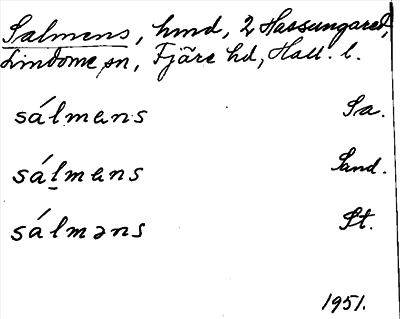 Salmens, hmd, 2 Hassungared,
Lindome sn, Fjäre hd, Hall. l.
sálmens Sa.
sáḷmens Sand.
sálməns St.
1951.